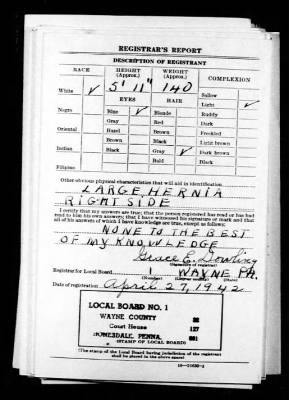 REGISTRAR'S REPORT
DESCRIPTION OF REGISTRANT
RACE HEIGHT (Approx.) WEIGHT (Approx.) COMPLEXION
White ✓ 5' 11" 140 Sallow
EYES HAIR Light ✓
Negro Blue ✓ Blonde Ruddy
Gray Red Dark
Oriental Hazel Brown Freckled
Brown Black Light brown
Indian Black Gray ✓ Dark brown
Bald Black
Filipino
Other obvious physical characteristics that will aid in identification
LARGE HERNIA
RIGHT SIDE
I certify that my answers are true; that the person registered has read or has had
read to him his own answers; that I have witnessed his signature or mark and that
all of his answers of which I have knowledge are true, except as follows:
NONE TO THE BEST
OF MY KNOWLEDGE
Grace E. Dowling
(Signature of registrar)
Registrar for Local Board 1 WAYNE PA.
(Number) (City or county) (State)
Date of registration April 27, 1942
LOCAL BOARD NO. 1
WAYNE COUNTY
Court House 127
HONESDALE, PENNA.
(STAMP OF LOCAL BOARD)
(The stamp of the Local Board having jurisdiction of the registrant
shall be placed in the above space)